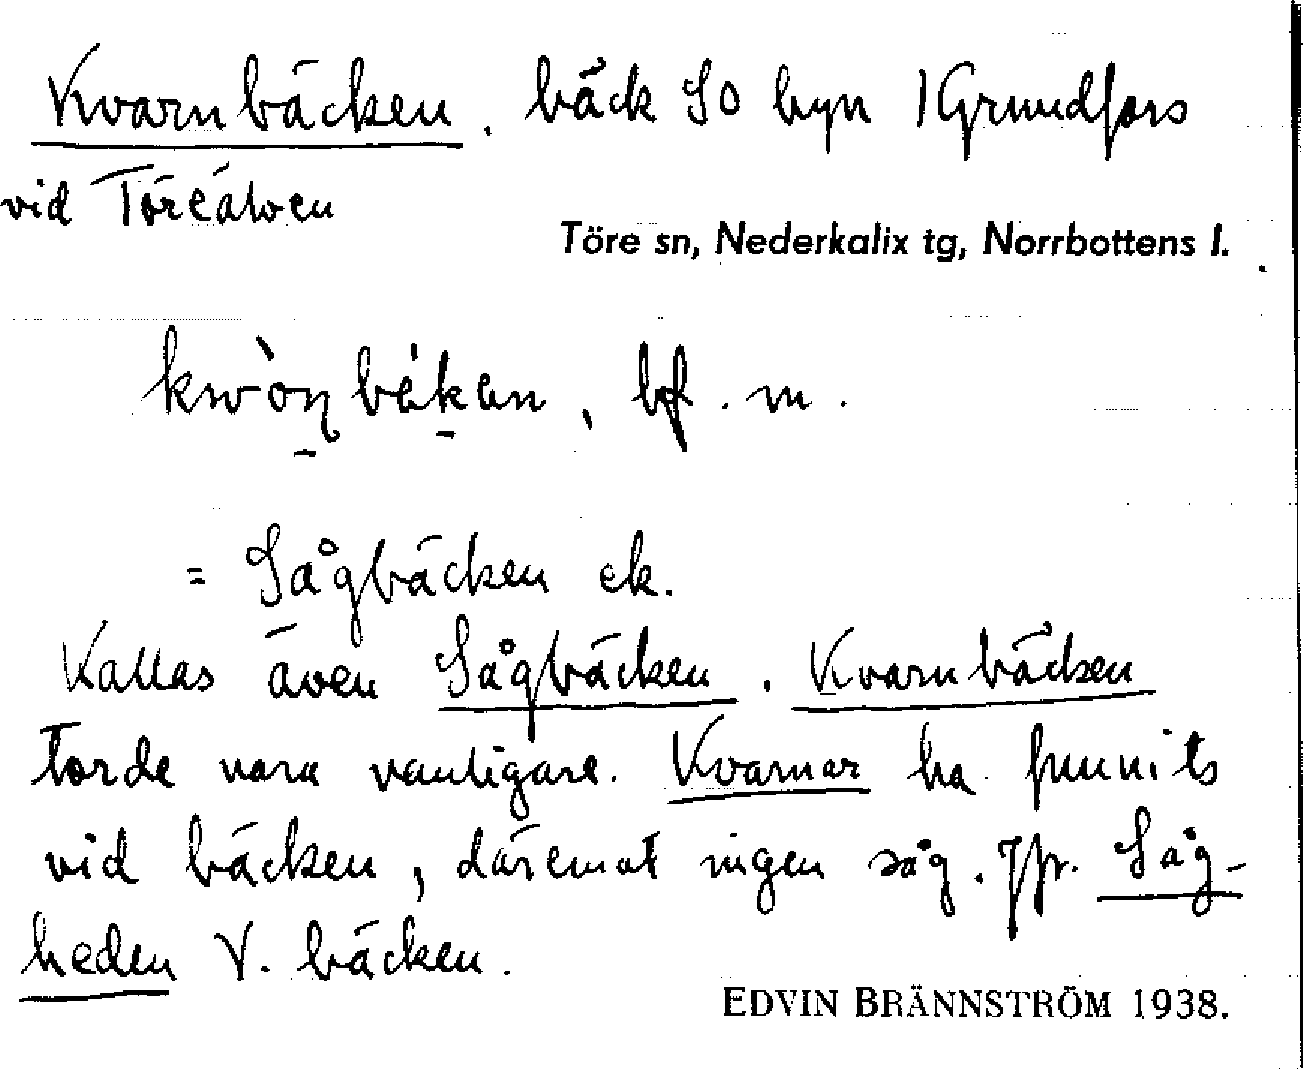 Kvarnbäcken. bäck SO byn 1 Grundfors
vid Töreälven
Töre sn, Nederkalix tg, Norrbottens l.
kwòn̠bék̠en, bf. m.
= Sågbäcken ek.
Kallas även Sågbäcken. Kvarnbäcken
torde vara vanligare. Kvarnar ha funnits
vid bäcken, däremot ingen såg. Jfr. Såg-
heden V. bäcken.
EDVIN BRÄNNSTRÖM 1938.